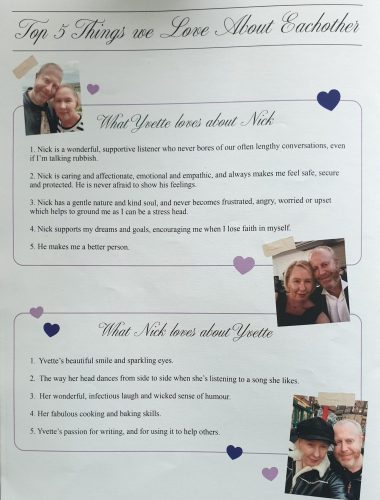 Top 5 Things we Love About Eachother
What Yvette loves about Nick
1. Nick is a wonderful, supportive listener who never bores of our often lengthy conversations, even
if I'm talking rubbish.
2. Nick is caring and affectionate, emotional and empathic, and always makes me feel safe, secure
and protected. He is never afraid to show his feelings.
3. Nick has a gentle nature and kind soul, and never becomes frustrated, angry, worried or upset
which helps to ground me as I can be a stress head.
4. Nick supports my dreams and goals, encouraging me when I lose faith in myself.
5. He makes me a better person.
What Nick loves about Yvette
1. Yvette's beautiful smile and sparkling eyes.
2. The way her head dances from side to side when she's listening to a song she likes.
3. Her wonderful, infectious laugh and wicked sense of humour.
4. Her fabulous cooking and baking skills.
5. Yvette's passion for writing, and for using it to help others.